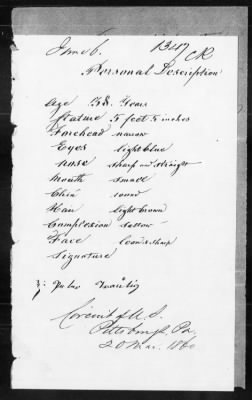 1347
Personal Description
Age 58 Years
Stature 5 feet 5 inches
Forehead narrow
Eyes light blue
nose sharp and straight
Mouth small
Chin round
Hair light brown
Complexion sallow
Face long & sharp
Signature
Circuit of U.S.
Pittsburgh, Pa.
20 1860